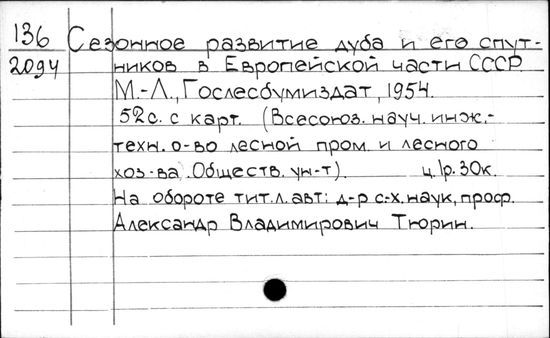 136 Сезонное развитие дуба и его спут-
2094 ников в Европейской части СССР.
М.-Л., Гослесбумиздат, 1954.
52с. с карт. (Всесоюз. науч. инж.-
техн. о-во лесной пром. и лесного
хоз-ва. Обществ. ун-т). ц. 1р. 30к.
На обороте тит. л. авт: д-р с-х. наук, проф.
Александр Владимирович Тюрин.